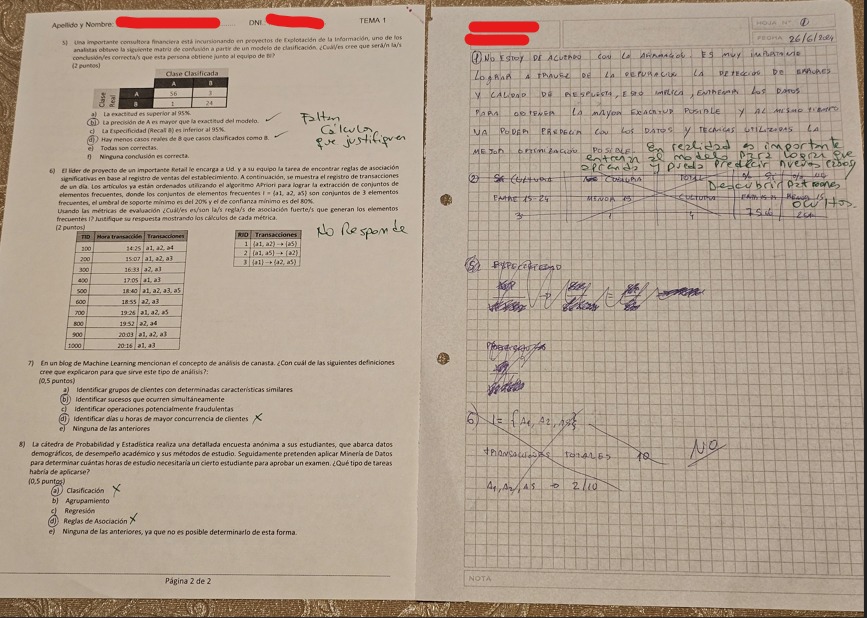 Apellido y Nombre:
DNI.
TEMA 1
5) Una importante consultora financiera está incursionando en proyectos de Explotación de la Información, uno de los
analistas obtuvo la siguiente matriz de confusión a partir de un modelo de clasificación. ¿Cuál/es cree que será/n la/s
conclusión/es correcta/s que esta persona obtiene junto al equipo de
(2 puntos)
Clase Clasificada
A B
Clase Real
A 56 3
B 1 24
a) La exactitud es superior al 95%.
b) La precisión de A es mayor que la exactitud del modelo.
c) La Especificidad (Recall B) es inferior al 95%.
d) Hay menos casos reales de B que casos clasificados como B.
e) Todas son correctas.
f) Ninguna conclusión es correcta.
Faltan
Cálculos
que justifiquen
6) El líder de proyecto de un importante Retail le encarga a Ud. y a su equipo la tarea de encontrar reglas de asociación
significativas en base al registro de ventas del establecimiento. A continuación, se muestra el registro de transacciones
de un día. Los artículos ya están ordenados utilizando el algoritmo APriori para lograr la extracción de conjuntos de
elementos frecuentes, donde los conjuntos de elementos frecuentes I = {a1, a2, a5} son conjuntos de 3 elementos
frecuentes, el umbral de soporte mínimo es del 20% y el de confianza mínimo es del 80%.
Usando las métricas de evaluación ¿Cuál/es es/son la/s regla/s de asociación fuerte/s que generan los elementos
frecuentes I? Justifique su respuesta mostrando los cálculos de cada métrica.
(2 puntos)
TID Hora transacción Transacciones
100 14:25 a1, a2, a4
200 15:07 a1, a2, a3
300 16:33 a2, a3
400 17:05 a1, a3
500 18:40 a1, a2, a3, a5
600 18:55 a2, a3
700 19:26 a1, a2, a5
800 19:52 a2, a4
900 20:03 a1, a2, a3
1000 20:16 a1, a3
RID Transacciones
1 {a1, a2} → {a5}
2 {a1, a5} → {a2}
3 {a1} → {a2, a5}
No Responde
7) En un blog de Machine Learning mencionan el concepto de análisis de canasta. ¿Con cuál de las siguientes definiciones
cree que explicaron para que sirve este tipo de análisis?:
(0,5 puntos)
a) Identificar grupos de clientes con determinadas características similares
b) Identificar sucesos que ocurren simultáneamente
c) Identificar operaciones potencialmente fraudulentas
d) Identificar días u horas de mayor concurrencia de clientes
e) Ninguna de las anteriores
8) La cátedra de Probabilidad y Estadística realiza una detallada encuesta anónima a sus estudiantes, que abarca datos
demográficos, de desempeño académico y sus métodos de estudio. Seguidamente pretenden aplicar Minería de Datos
para determinar cuántas horas de estudio necesitaría un cierto estudiante para aprobar un examen. ¿Qué tipo de tareas
habría de aplicarse?
(0,5 puntos)
a) Clasificación
b) Agrupamiento
c) Regresión
d) Reglas de Asociación
e) Ninguna de las anteriores, ya que no es posible determinarlo de esta forma.
Página 2 de 2
HOJA N° 1
FECHA 26/6/2024
1 NO ESTOY DE ACUERDO CON LA AFIRMACIÓN. ES MUY IMPORTANTE
LOGRAR A TRAVÉS DE LA DEPURACIÓN LA DETECCIÓN DE ERRORES
Y CALIDAD DE RESPUESTA, ESTO IMPLICA, ENTRENAR LOS DATOS
PARA OBTENER LA MAYOR EXACTITUD POSIBLE Y AL MISMO TIEMPO
VA PODER PREDECIR CON LOS DATOS Y TECNICAS UTILIZADAS LA
MEJOR OPTIMIZACIÓN POSIBLE.
En realidad es importante
entrenar al modelo para lograr que
aprenda y pueda predecir nuevos casos y
Descubrir Patrones
Ocultos.
2
TOTAL
ENTRE 15-24 MENOR 15
3 1 4 75%
5
6) I = {A1, A2, A5}
TRANSACCIONES TOTALES 10
A1, A2, A5 → 2/10
NO
NOTA